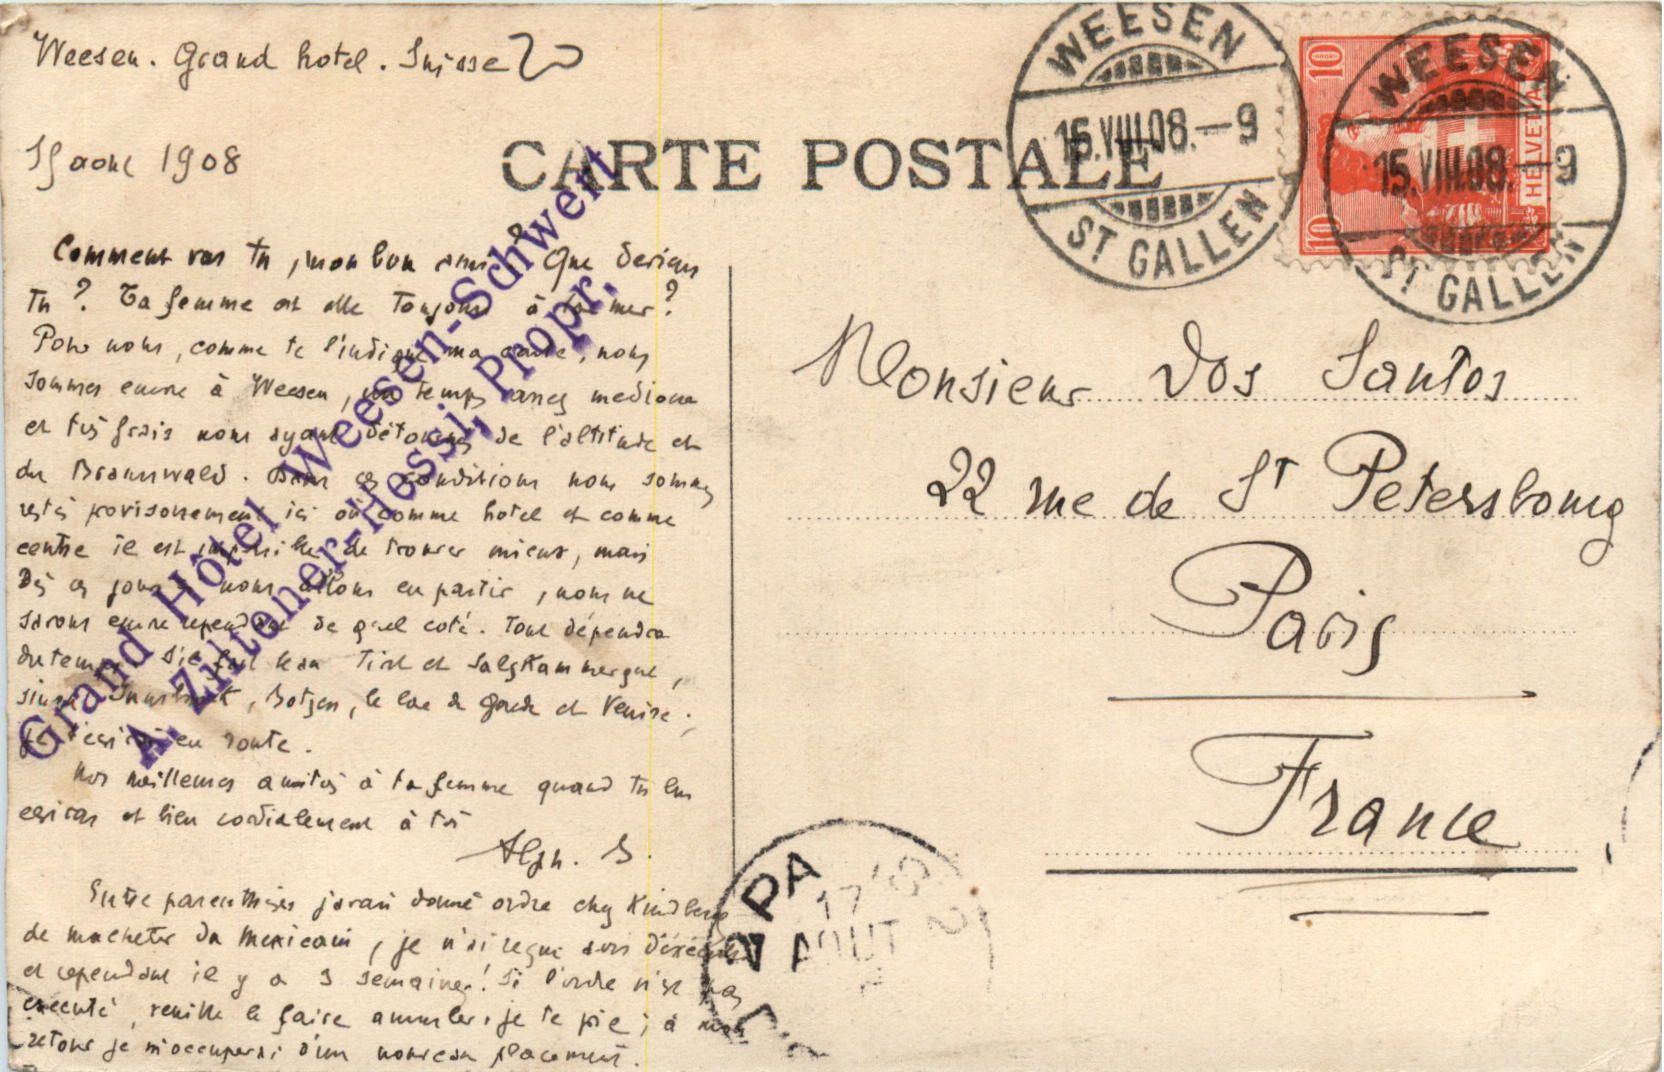 Weesen. Grand hotel. Suisse
15 aout 1908
CARTE POSTALE
WEESEN
15.VIII.08.–9
ST GALLEN
WEESEN
15.VIII.08.–9
ST GALLEN
10
HELVETIA
10
Grand Hôtel Weesen-Schwert
A. Ziltener-Hessi, Propr.
Comment vas tu, mon bon ami? Que deviens
tu? Ta femme est elle toujours à la mer?
Pour nous, comme te l'indique ma carte, nous
sommes encore à Weesen, un temps assez mediocre
et très frais nous ayant détournés de l'altitude et
du Braunwald. Dans ces conditions nous sommes
restés provisoirement ici où comme hotel et comme
centre il est impossible de trouver mieux, mais
Dès ces jours nous allons en partir, nous ne
savons encore cependant de quel coté. Tout dépendra
du temps. S'il fait beau Tirol et Salzkammergut,
sinon Innsbruck, Botzen, le lac de Garde et Venise.
Je t'ecrirai en route.
Nos meilleures amitiés à ta femme quand tu lui
ecriras et bien cordialement à toi
Alph. S.
Entre parenthèses j'avais donné ordre chez
de m'acheter du Mexicain, je n'ai reçu avis d'éxécution
et cependant il y a 3 semaines! Si l'ordre n'est pas
executé, veuille le faire annuler, je te prie; à mon
retour je m'occuperai d'un nouveau placement.
Monsieur Dos Santos
22 rue de St Petersbourg
Paris
France
PA
17
AOUT